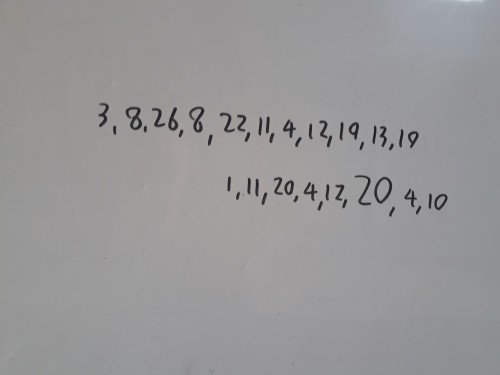 3, 8, 26, 8, 22, 11, 4, 12, 19, 13, 19
1, 11, 20, 4, 12, 20, 4, 10